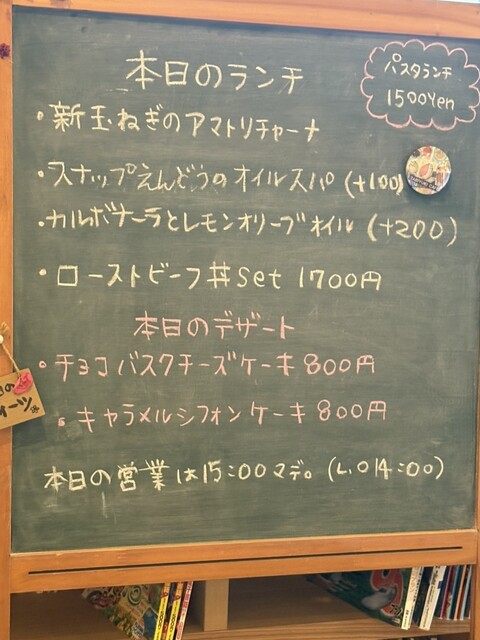 本日のランチ
パスタランチ
1500Yen
・新玉ねぎのアマトリチャーナ
・スナップえんどうのオイルスパ (+100)
・カルボナーラとレモンオリーブオイル (+200)
・ローストビーフ丼set 1700円
本日のデザート
・チョコバスクチーズケーキ 800円
・キャラメルシフォンケーキ 800円
本日の営業は15:00マデ。(L.O14:00)